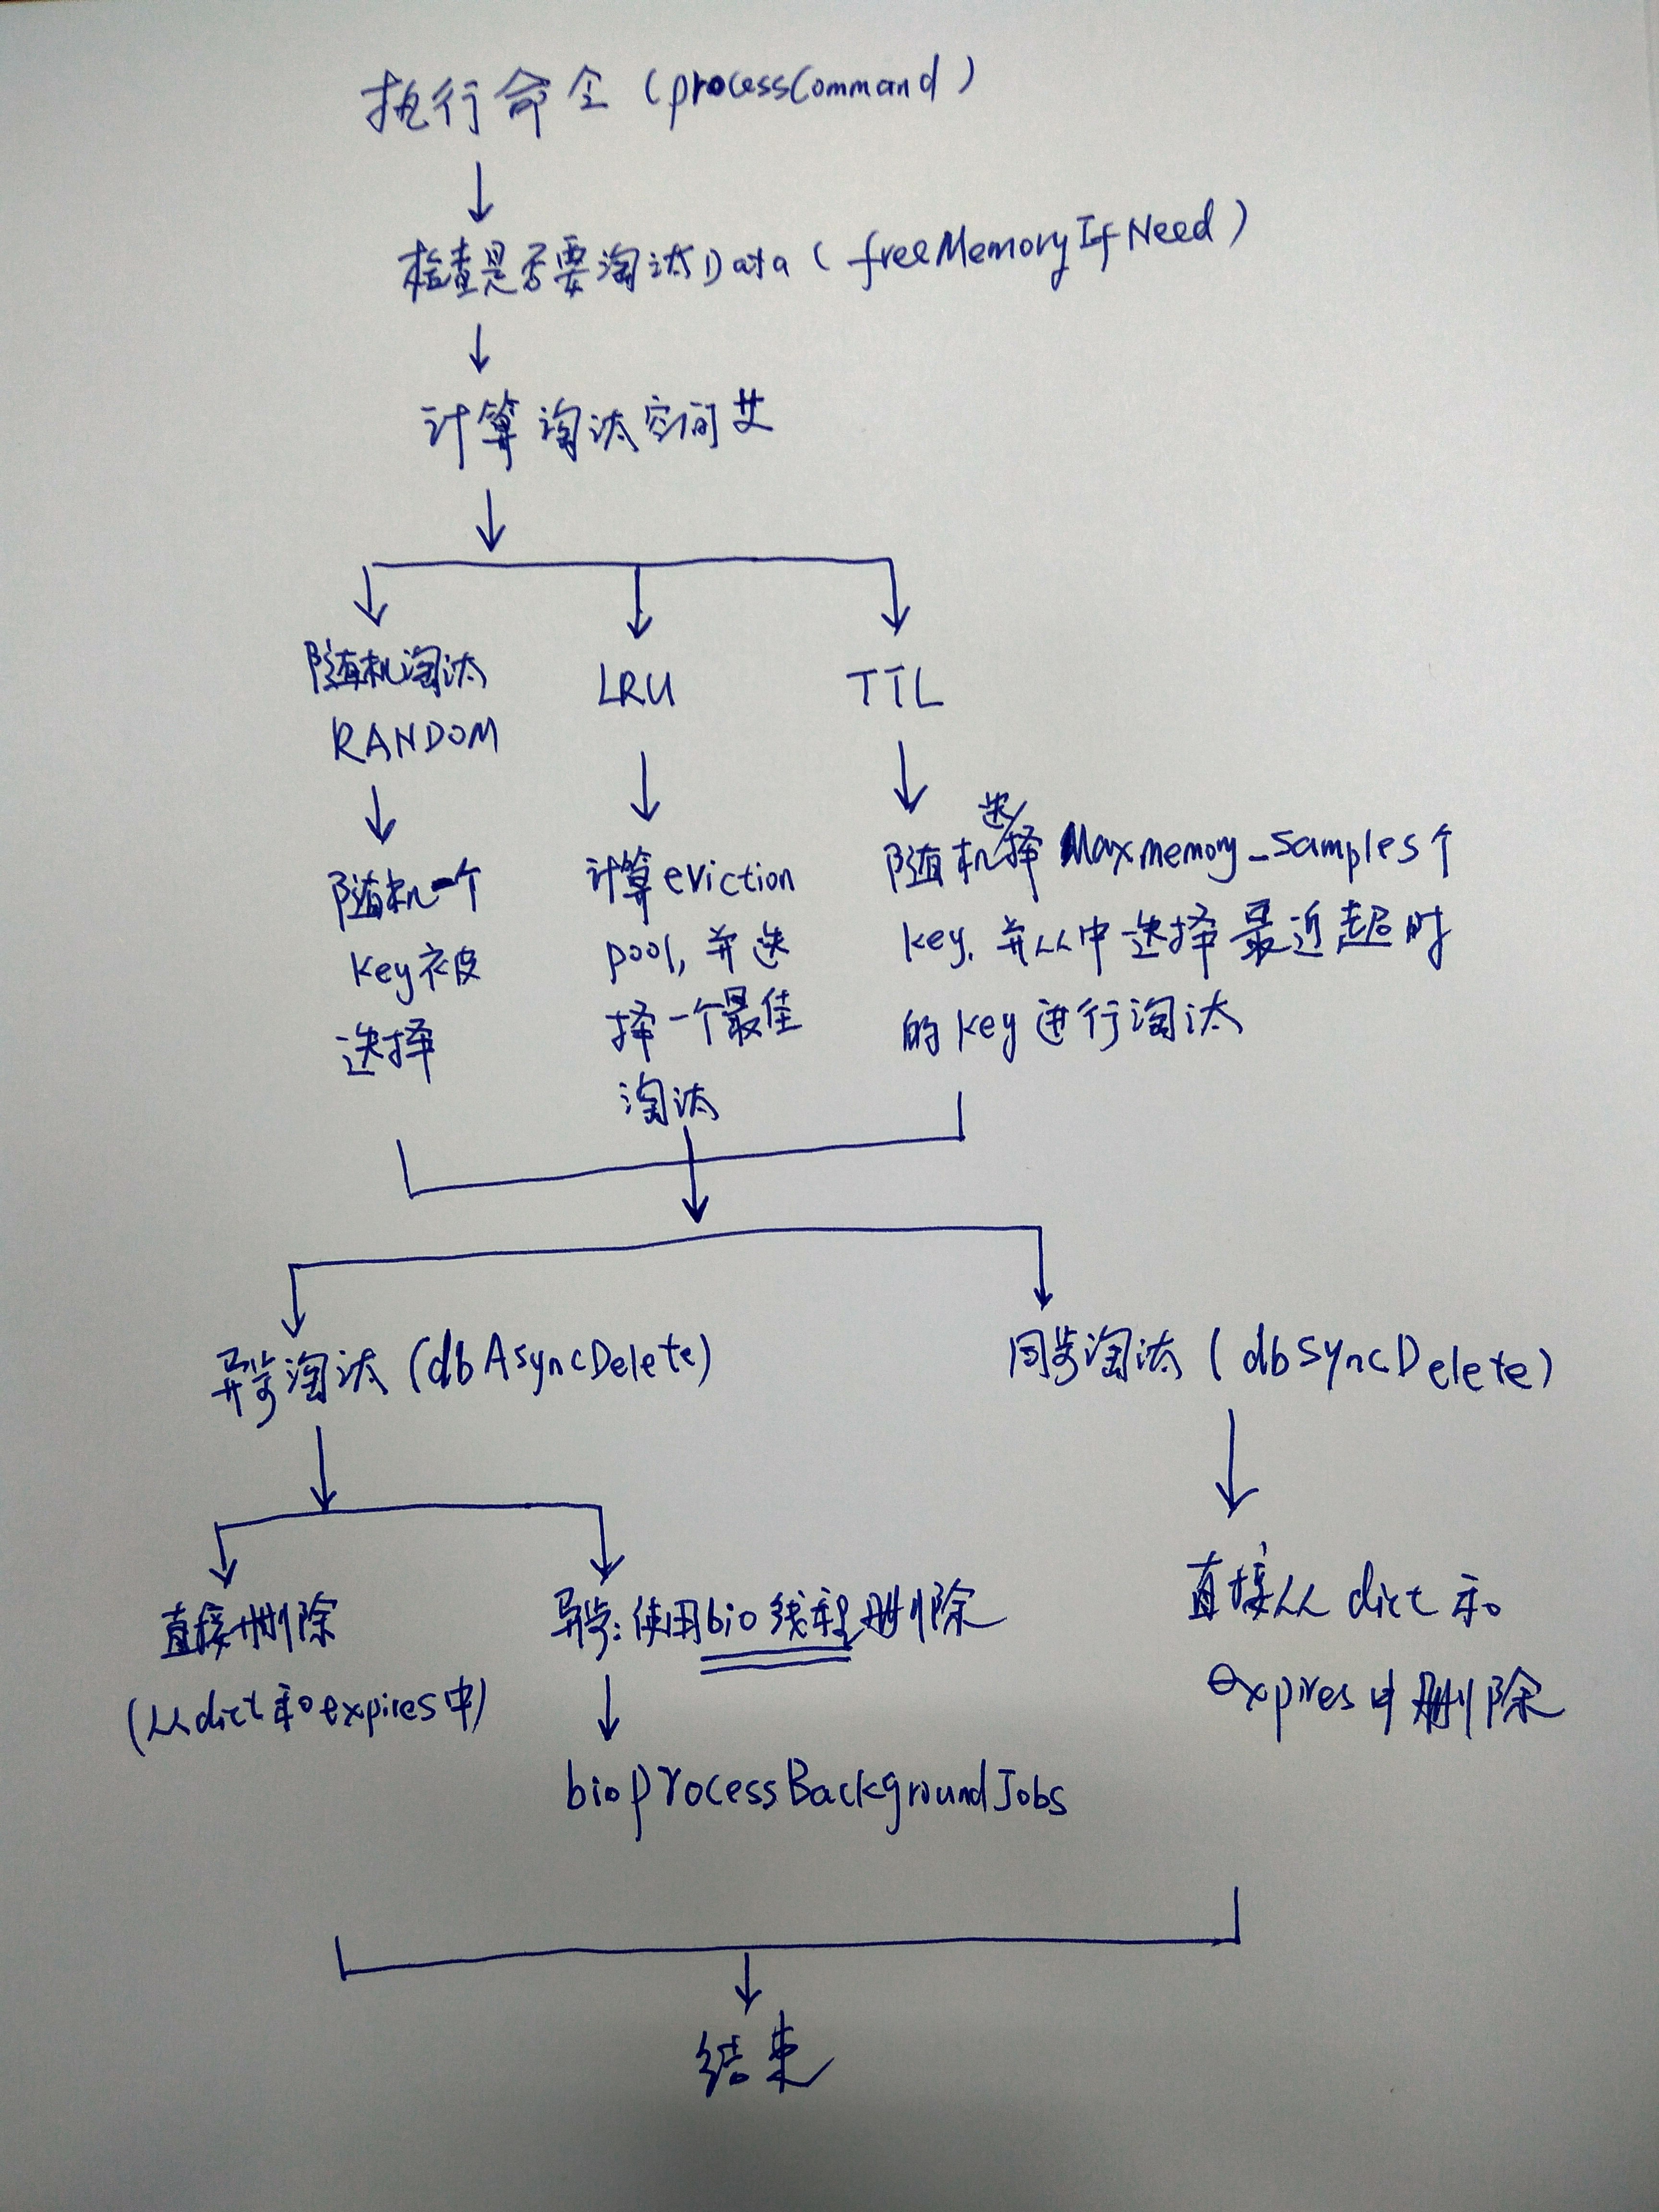 执行命令(processCommand)
检查是否要淘汰Data(freeMemoryIfNeed)
计算淘汰空间
随机淘汰
RANDOM
LRU
TTL
随机一个
key被
选择
计算eviction
pool,并选
择一个最佳
淘汰
随机选择Maxmemory_samples个
key.并从中选择最近超时
的key进行淘汰
异步淘汰(dbAsyncDelete)
同步淘汰(dbSyncDelete)
直接删除
(从dict和expires中)
异步:使用bio线程删除
bioProcessBackgroundJobs
直接从dict和
expires中删除
结束